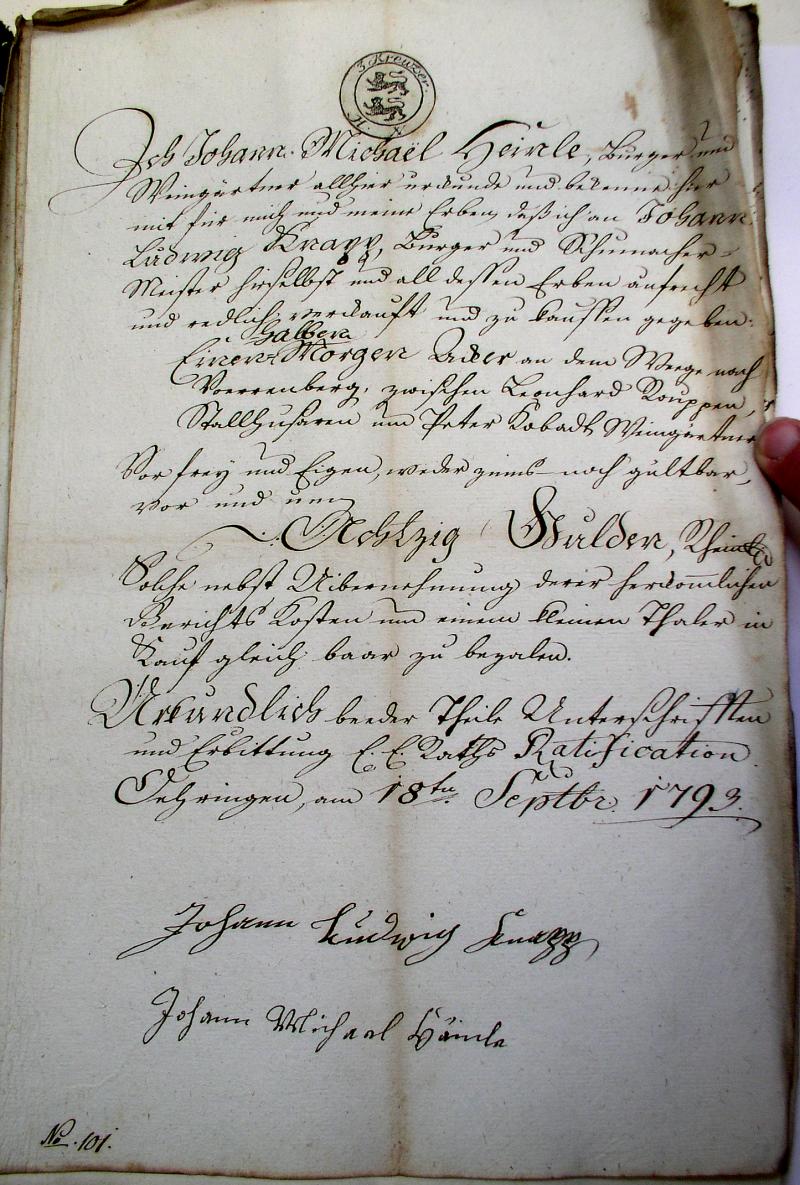 3. Kreuzer.
H. N.
Ich Johann Michaël Heinle, Burger und
Weingärtner allhier urkunde und bekenne hier
mit für mich und meine Erben, daß ich an Johann
Ludwig Knapp, Burger und Schumacher-
Meister hieselbst und all dessen Erben aufrecht
und redlich verkauft und zu kauffen gegeben:
halben
Einen Morgen Acker an dem Weege nach
Verrenberg, zwischen Leonhard Rouppen,
Stallhusaren und Peter Kobadt Weingärtner
Vor frey und Eigen, weder zinns- noch gültbar,
vor und um
Achtzig Gulden, Rheinl.
Solche nebst Uibernehmung derer herkom̄lichen
Gerichts Kosten und einem kleinen Thaler in
Kauf gleich baar zu bezalen.
Urkundlich beeder Theile Unterschrifften
und Erbittung E. E. Raths Ratification
Oehringen, am 18ten Septbr. 1793.
Johann Ludwig Knapp
Johann Michael Häinle
No. 101.